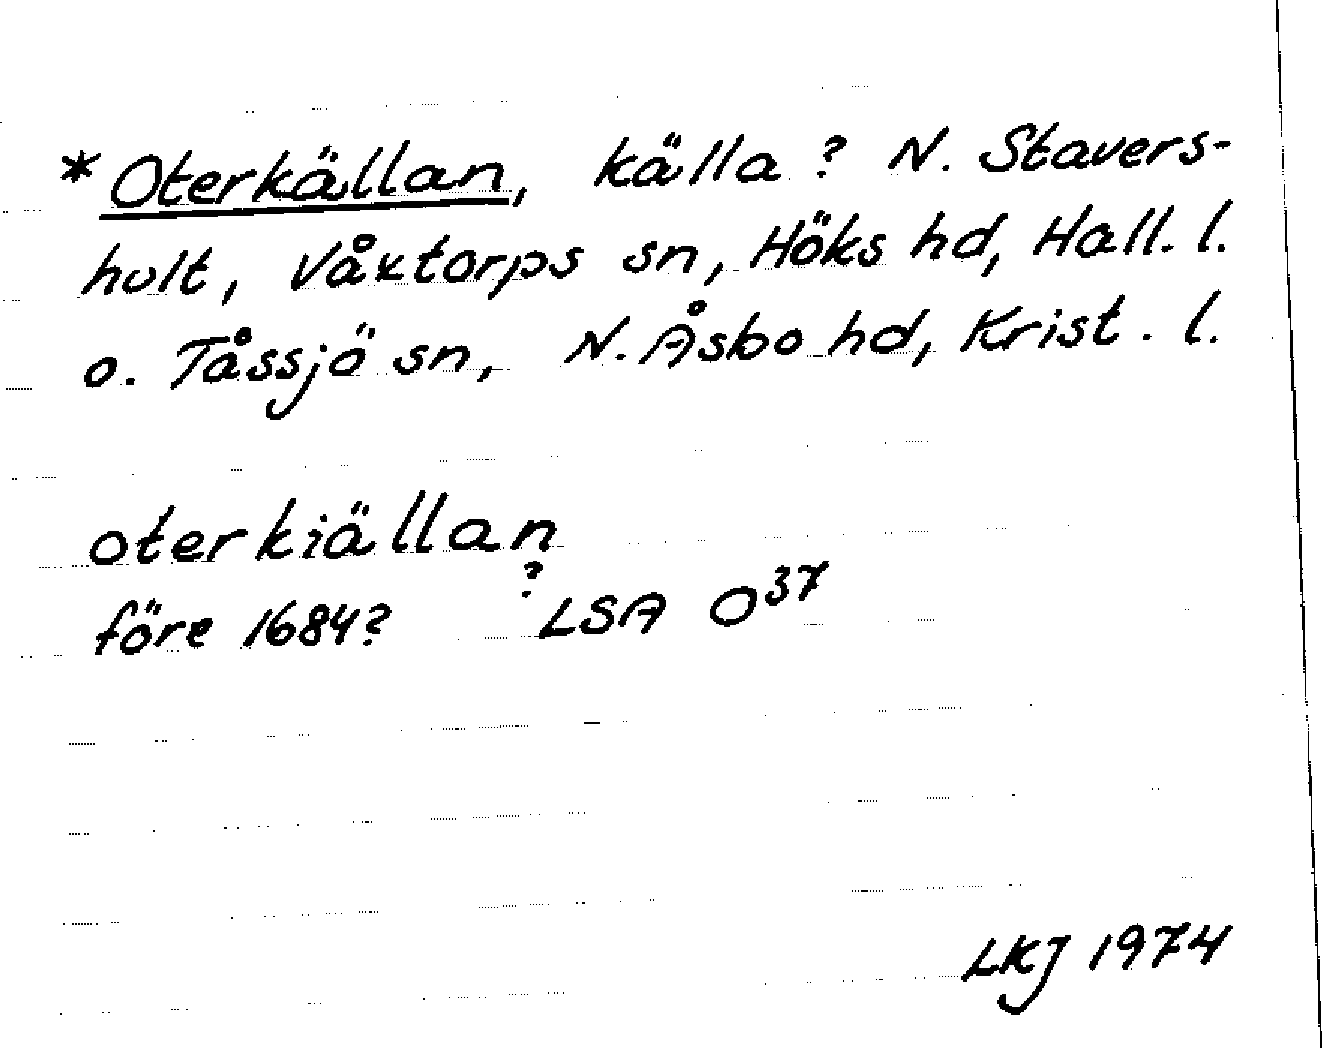 *Oterkällan, källa? N. Stavers-
hult, Våxtorps sn, Höks hd, Hall. l.
o. Tåssjö sn, N. Åsbo hd, Krist. l.
oterkiällan
?
före 1684? LSA O37
LKJ 1974